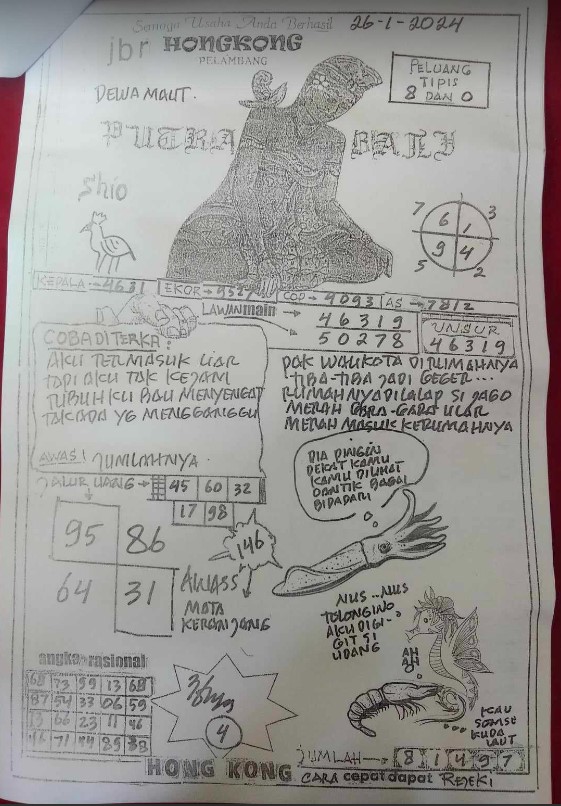 Semoga Usaha Anda Berhasil
26-1-2024
jbr HONGKONG
PELAMBANG
PELUANG
TIPIS
8 DAN 0
DEWA MAUT.
PUTRA BALI
Shio
7 6 1 3
5 9 4 2
KEPALA → 4631
EKOR →
COP → 9093
AS → 7812
LAWAN main
46319
50278
UNSUR
46319
COBA DITERKA:
AKU TERMASUK LIAR
TAPI AKU TAK KEJAM
TUBUH KU BAU MENYENGAT
TAK ADA YG MENGGANGGU
AWAS! JUMLAHNYA
PAK WALIKOTA DI RUMAHNYA
TIBA-TIBA JADI GEGER...
RUMAHNYA DILALAP SI JAGO
MERAH GARA-GARA ULAR
MERAH MASUK KERUMAHNYA
JALUR UANG → 45 60 32
17 98
DIA PINGIN
DEKAT KAMU
KAMU DILIHAT
CANTIK BAGAI
BIDADARI
95 86
64 31
146
AWASS
MATA
KERANJANG
NUS...NUS
TOLONGINO
AKU DIGI-
GIT SI
UDANG
AH
AH
angka rasional
68 73 59 13 68
87 54 33 06 59
13 66 23 11 46
46 71 44 89 38
4
KAU
SOMSE
KUDA
LAUT
JUMLAH → 8 1 4 9 7
HONG KONG
CARA cepat dapat REJEKI